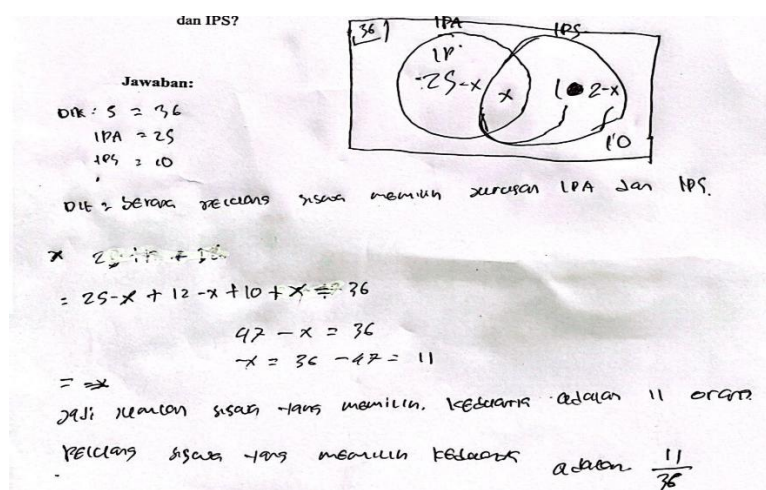 dan IPS?
36 IPA IPS
IP
25-x x 1 2-x
10
Jawaban:
Dik : S = 36
IPA = 25
IPS = 10
Dit = Berapa peluang siswa memilih jurusan IPA dan IPS.
x
= 25-x + 12-x + 10 + x = 36
47 - x = 36
-x = 36 - 47 = 11
= x
Jadi jumlah siswa yang memilih keduanya adalah 11 orang
Peluang siswa yang memilih keduanya adalah 11/36